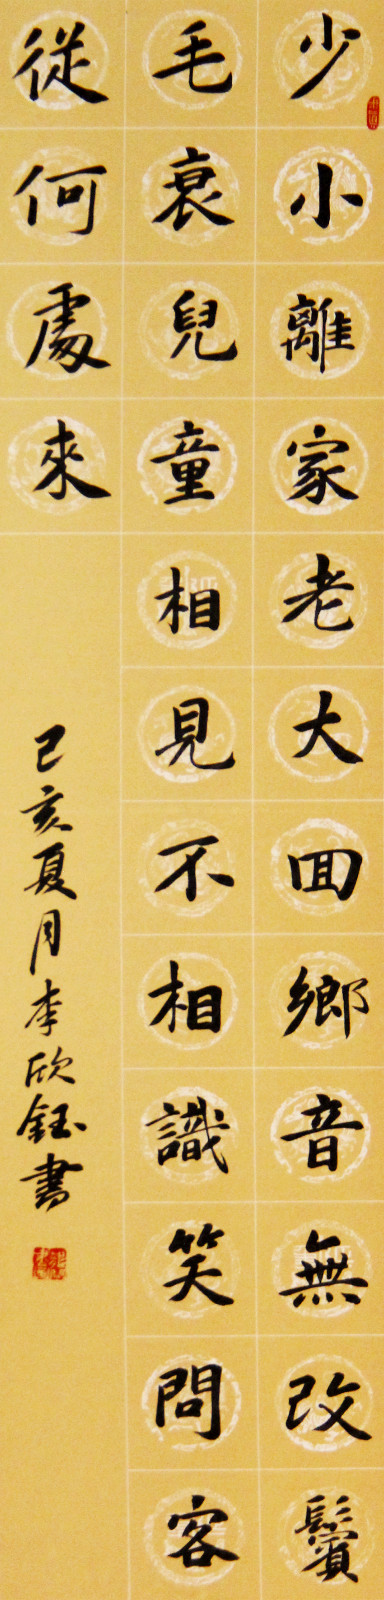 少小離家老大回鄉音無改鬢
毛衰兒童相見不相識笑問客
從何處來
己亥夏月李欣鈺書